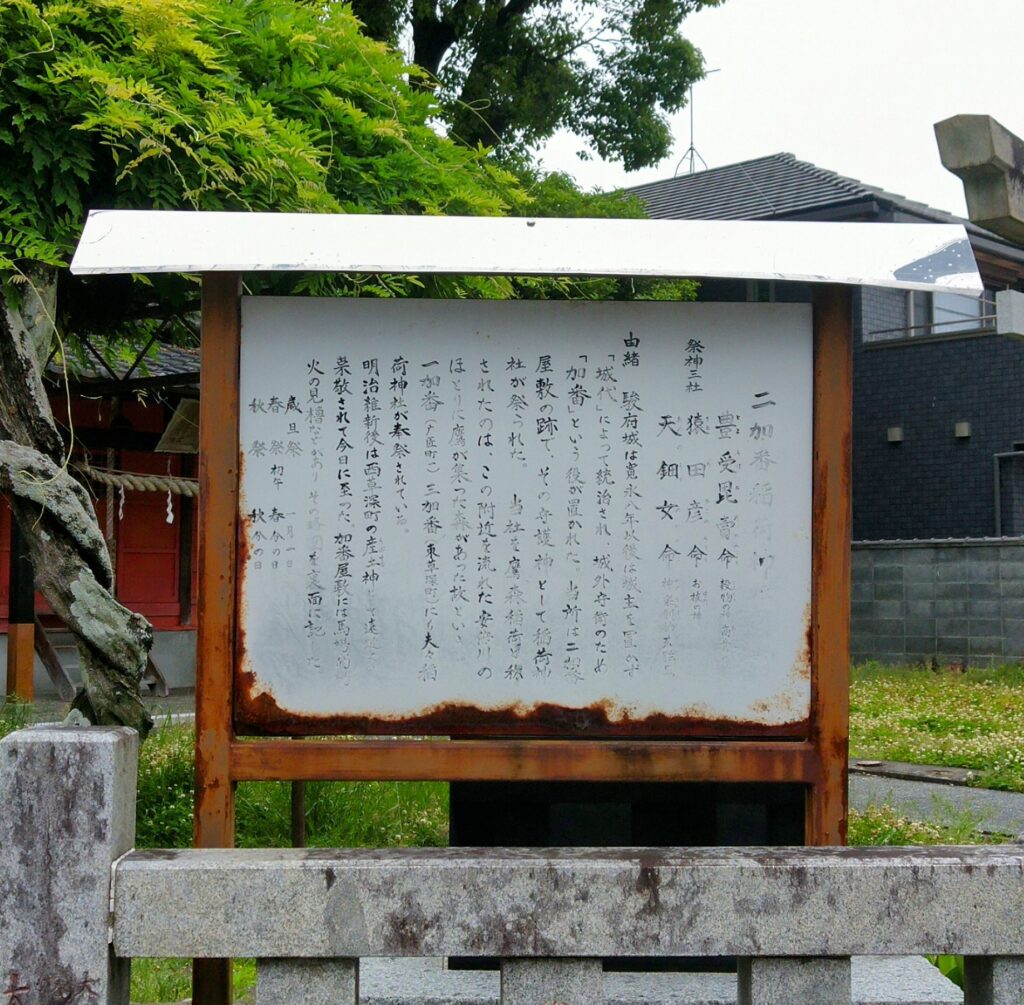 二加番稲荷
祭神三社
豊受毘売命
猿田彦命 お祓の神
天鈿女命
由緒 駿府城は寛永八年以後は城主を置かず
「城代」によって統治され、城外守衛のため
「加番」という役が置かれた。当所は二加番
屋敷の跡で、その守護神として稲荷神
社が祭られた。 当社を鷹森稲荷と称
されたのは、この附近を流れた安倍川の
ほとりに鷹が集った森があった故という。
一加番(鷹匠町) 三加番(東草深町)にも夫々稲
荷神社が奉祭されている。
明治維新後は西草深町の産土神として
崇敬されて今日に至った。加番屋敷には馬場、的場、
火の見櫓などがあり その 図を裏面に記した
歳旦祭 一月一日
春祭 初午 春分の日
秋祭 秋分の日